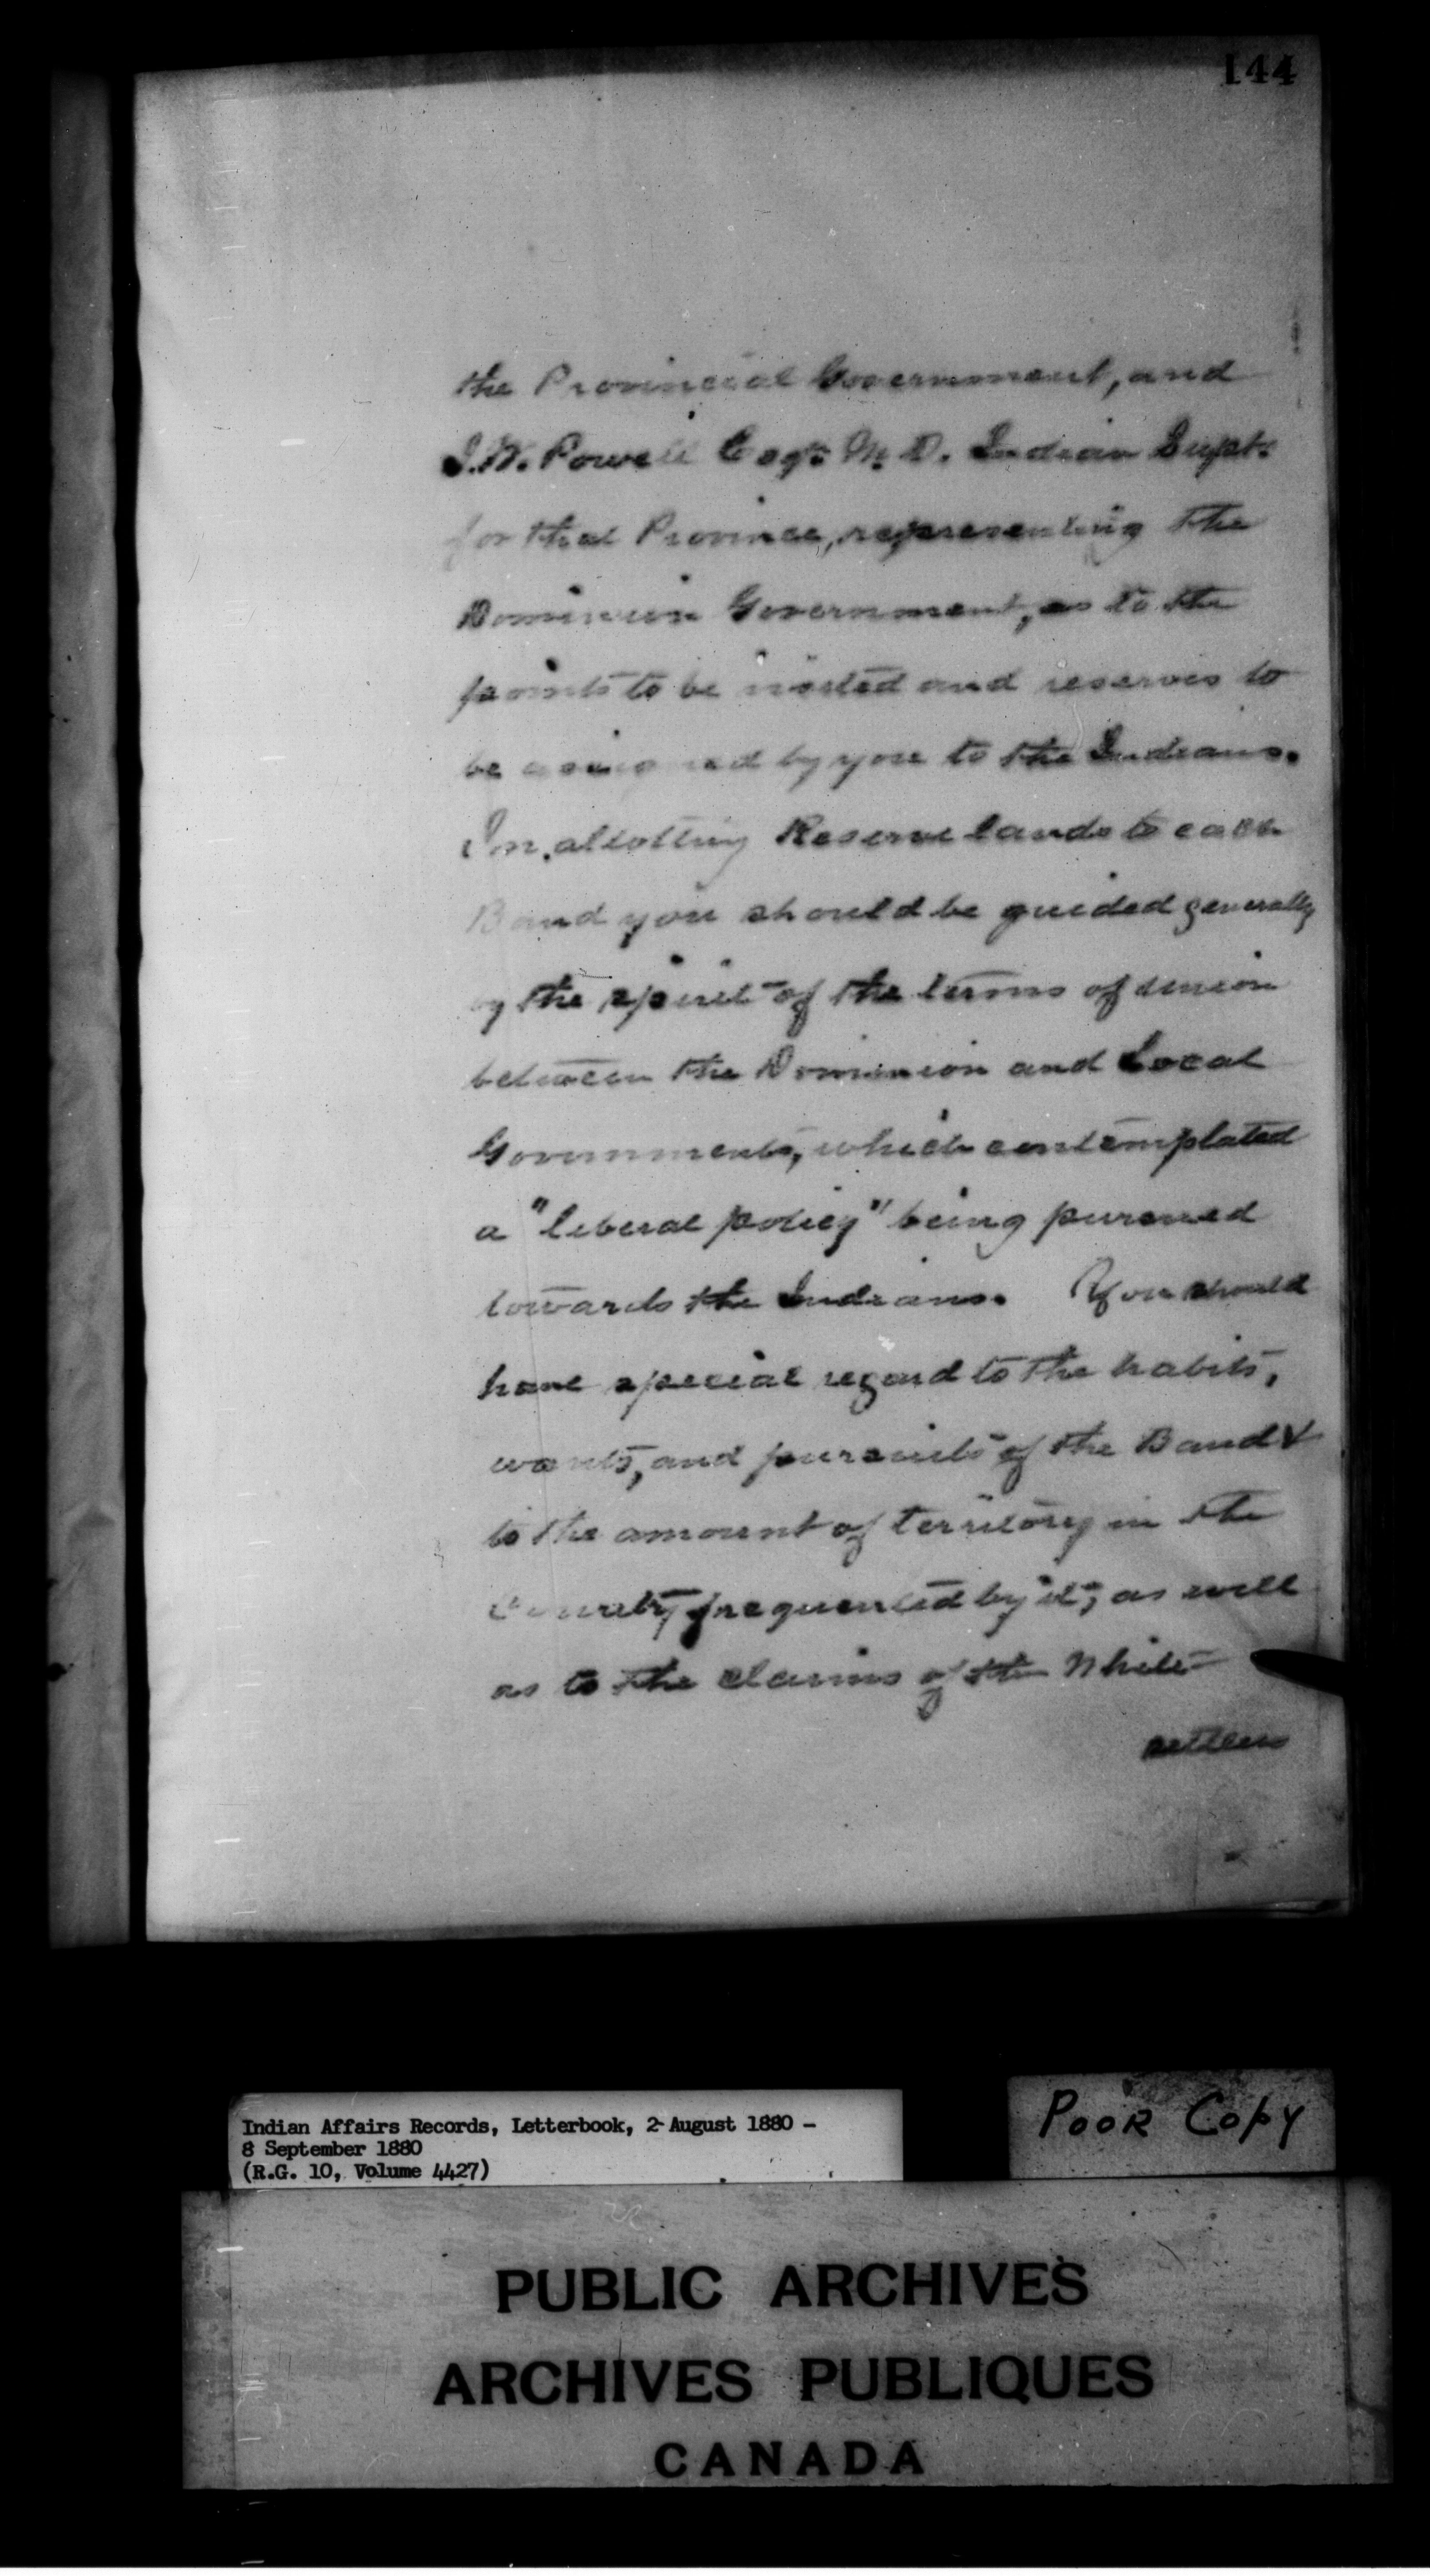 144
the Provincial Government, and
I.W. Powell Esqr. M.D. Indian Supt.
for that Province, representing the
Dominion Government, as to the
points to be visited and reserves to
be assigned by you to the Indians.
In allotting Reserve lands to each
Band you should be guided generally
by the spirit of the terms of union
between the Dominion and Local
Governments, which contemplated
a "liberal policy" being pursued
towards the Indians. You should
have special regard to the habits,
wants, and pursuits of the Band &
to the amount of territory in the
Country frequented by it, as well
as to the claims of the White
settlers
Indian Affairs Records, Letterbook, 2 August 1880 -
8 September 1880
(R.G. 10, Volume 4427)
Poor Copy
PUBLIC ARCHIVES
ARCHIVES PUBLIQUES
CANADA